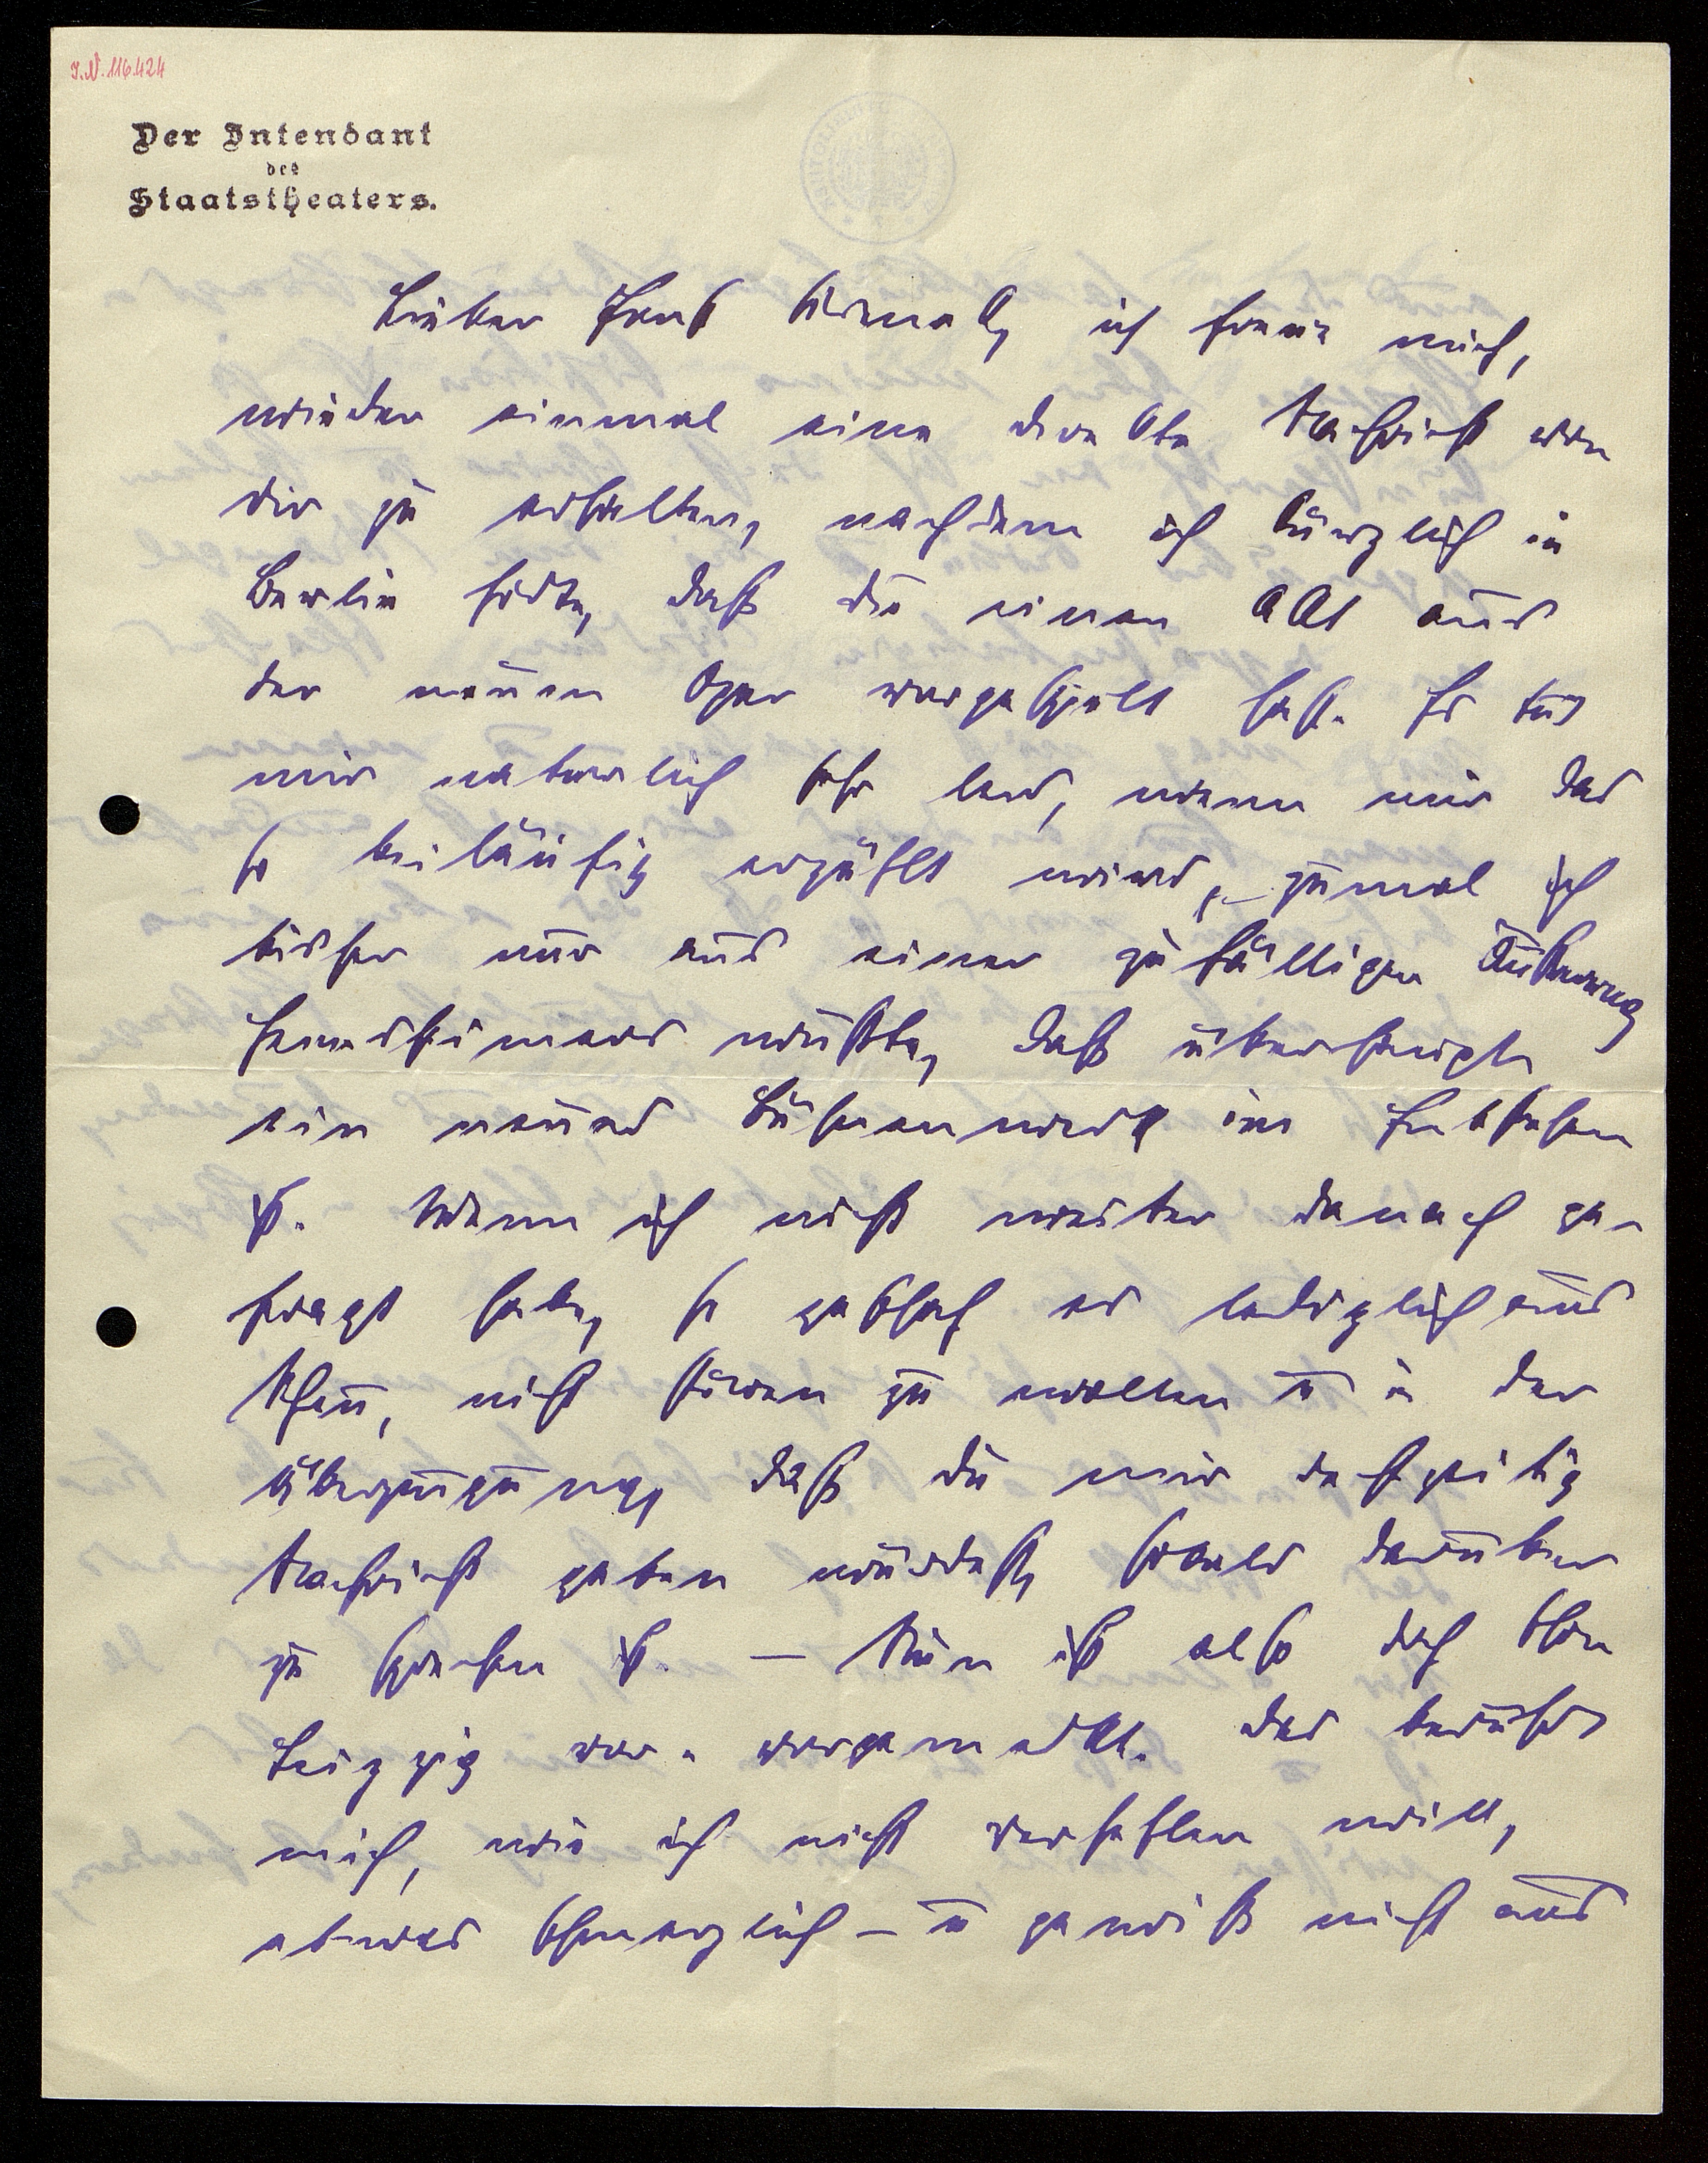 J.N. 116.424
Der Intendant
des
Staatstheaters.
Lieber Ernst Křenek, ich freue mich,
wieder einmal eine direkte Nachricht von
dir zu erhalten, nachdem ich kürzlich in
Berlin hörte, daß du einen Akt aus
der neuen Oper vorgespielt hast. Es tut
mir natürlich sehr leid, wenn mir das
so beiläufig erzählt wird, zumal ich
bisher nur aus einer zufälligen Äußerung
wußte, daß überhaupt
ein neues Bühnenwerk im Entstehen
ist. Wenn ich nicht weiter danach ge-
fragt habe, so geschah es lediglich aus
Scheu, nicht stören zu wollen u in der
Überzeugung, daß du mir rechtzeitig
Nachricht geben würdest, sobald darüber
zu sprechen ist. — Nun ist also doch schon
Leipzig vor- vorgemerkt. Das berührt
mich, wie ich nicht verhehlen will,
etwas schmerzlich – u gewiß nicht aus